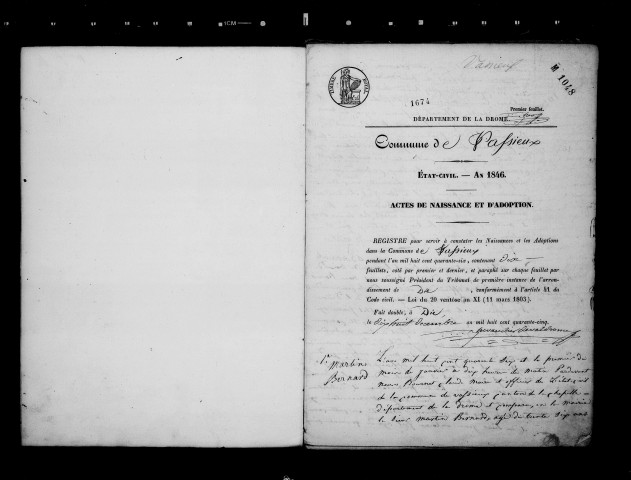 Vassieux
M 1048
TIMBRE ROYAL
1674
Premier feuillet.
DÉPARTEMENT DE LA DROME.
Commune de Vassieux
ÉTAT-CIVIL. — AN 1846.
ACTES DE NAISSANCE ET D'ADOPTION.
REGISTRE pour servir à constater les Naissances et les Adoptions
dans la Commune de Vassieux
pendant l'an mil huit cent quarante-six, contenant dix
feuillets, coté par premier et dernier, et paraphé sur chaque feuillet par
nous soussigné Président du Tribunal de première instance de l'arron-
dissement de Die, conformément à l'article 41 du
Code civil. — Loi du 20 ventôse an XI (11 mars 1803).
Fait double, à Die
le dix huit Decembre an mil huit cent quarante-cinq.
1er Martin
Bernard
L'an mil huit cent quarante six et le premier du
mois de janvier à dix heures du matin Pardevant
nous, maire et officier de l'état civil
de la commune de vassieux canton de la chapelle
département de la drome est comparu
le sieur martin Bernard, agé de trente six ans